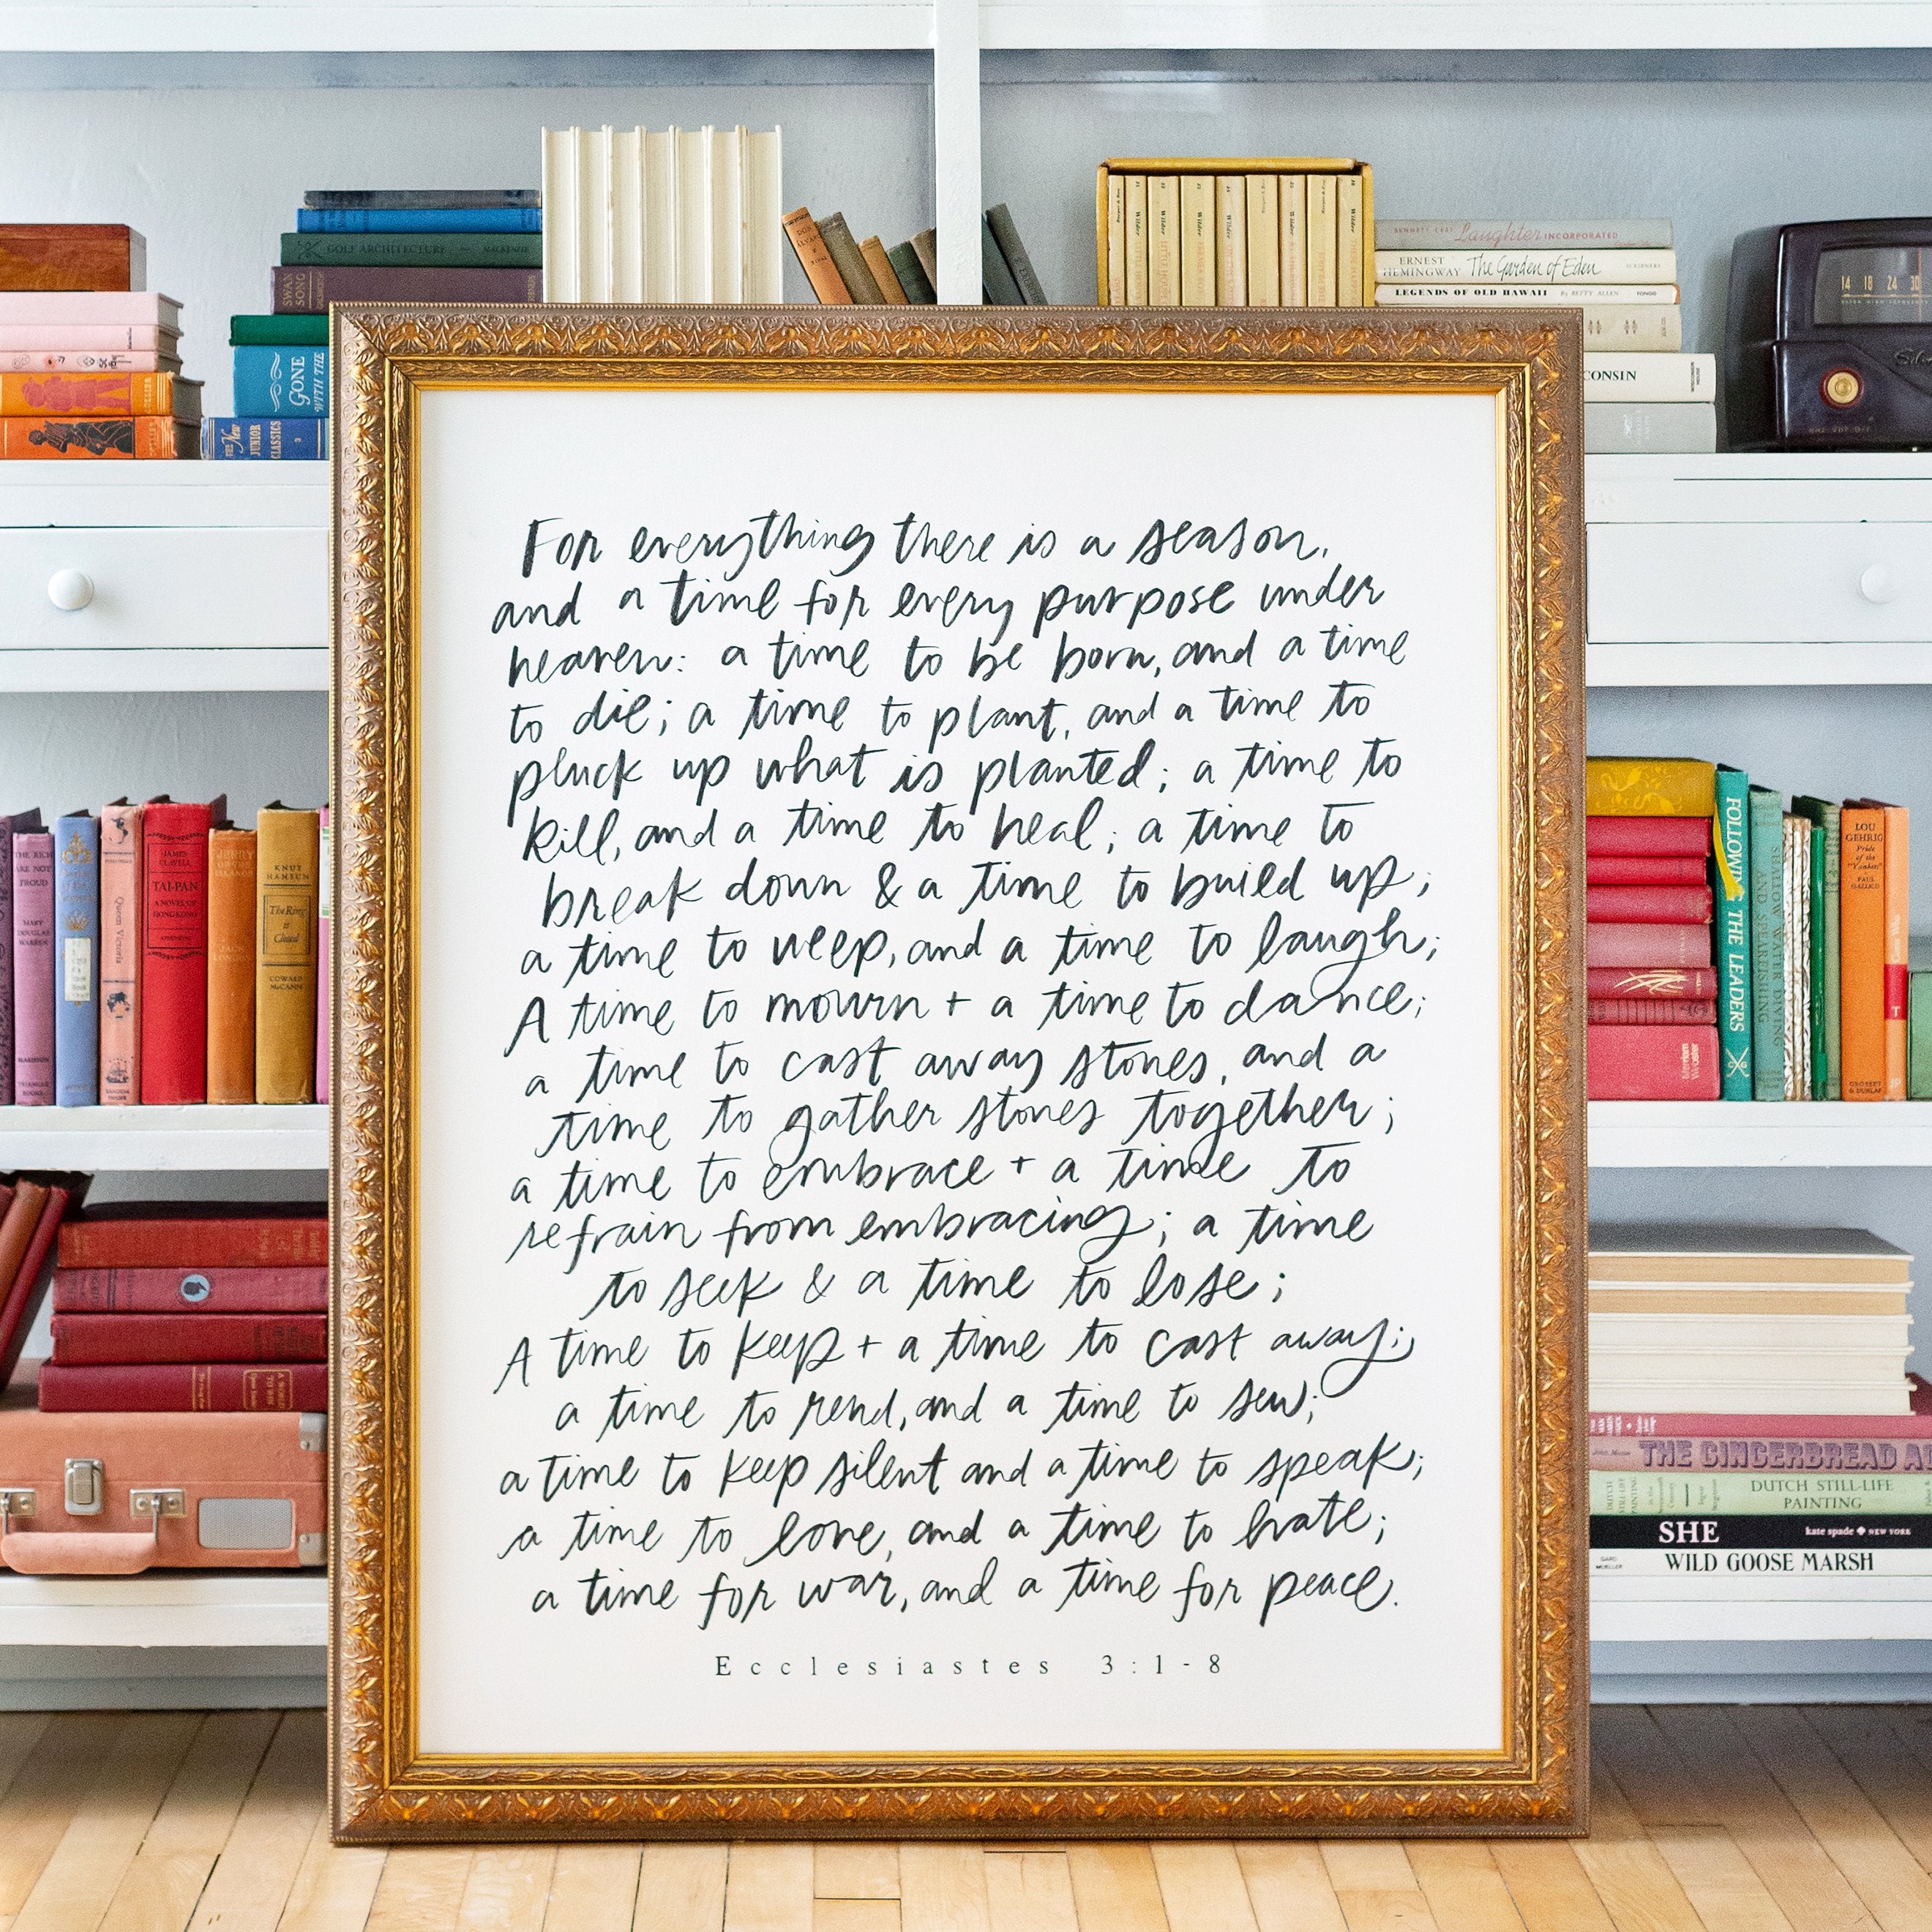 GOLF ARCHITECTURE MACKENZIE
SWAN SONG
GONE WITH THE
THE New JUNIOR CLASSICS 3
Laughter INCORPORATED
ERNEST HEMINGWAY The Garden of Eden SCRIBNERS
LEGENDS OF OLD HAWAII By BETTY ALLEN TONGG
CONSIN
14 18 24 30
For everything there is a season,
and a time for every purpose under
heaven: a time to be born, and a time
to die; a time to plant, and a time to
pluck up what is planted; a time to
kill, and a time to heal; a time to
break down & a time to build up;
a time to weep, and a time to laugh;
A time to mourn + a time to dance;
a time to cast away stones, and a
time to gather stones together;
a time to embrace + a time to
refrain from embracing; a time
to seek & a time to lose;
A time to keep + a time to cast away;
a time to rend, and a time to sew;
a time to keep silent and a time to speak;
a time to love, and a time to hate;
a time for war, and a time for peace.
Ecclesiastes 3:1-8
THE RICH ARE NOT PROUD
MARY DOUGLAS WARREN
Queen Victoria
JAMES CLAVELL
TAI-PAN
A NOVEL OF HONG KONG
KNUT HAMSUN
The Ring is Closed
COWARD McCANN
FOLLOWING THE LEADERS
SHALLOW WATER DIVING AND SPEARFISHING
LOU GEHRIG
Pride of the "Yankees"
PAUL GALLICO
GROSSET & DUNLAP
THE GINGERBREAD
DUTCH STILL-LIFE PAINTING
SHE kate spade NEW YORK
WILD GOOSE MARSH